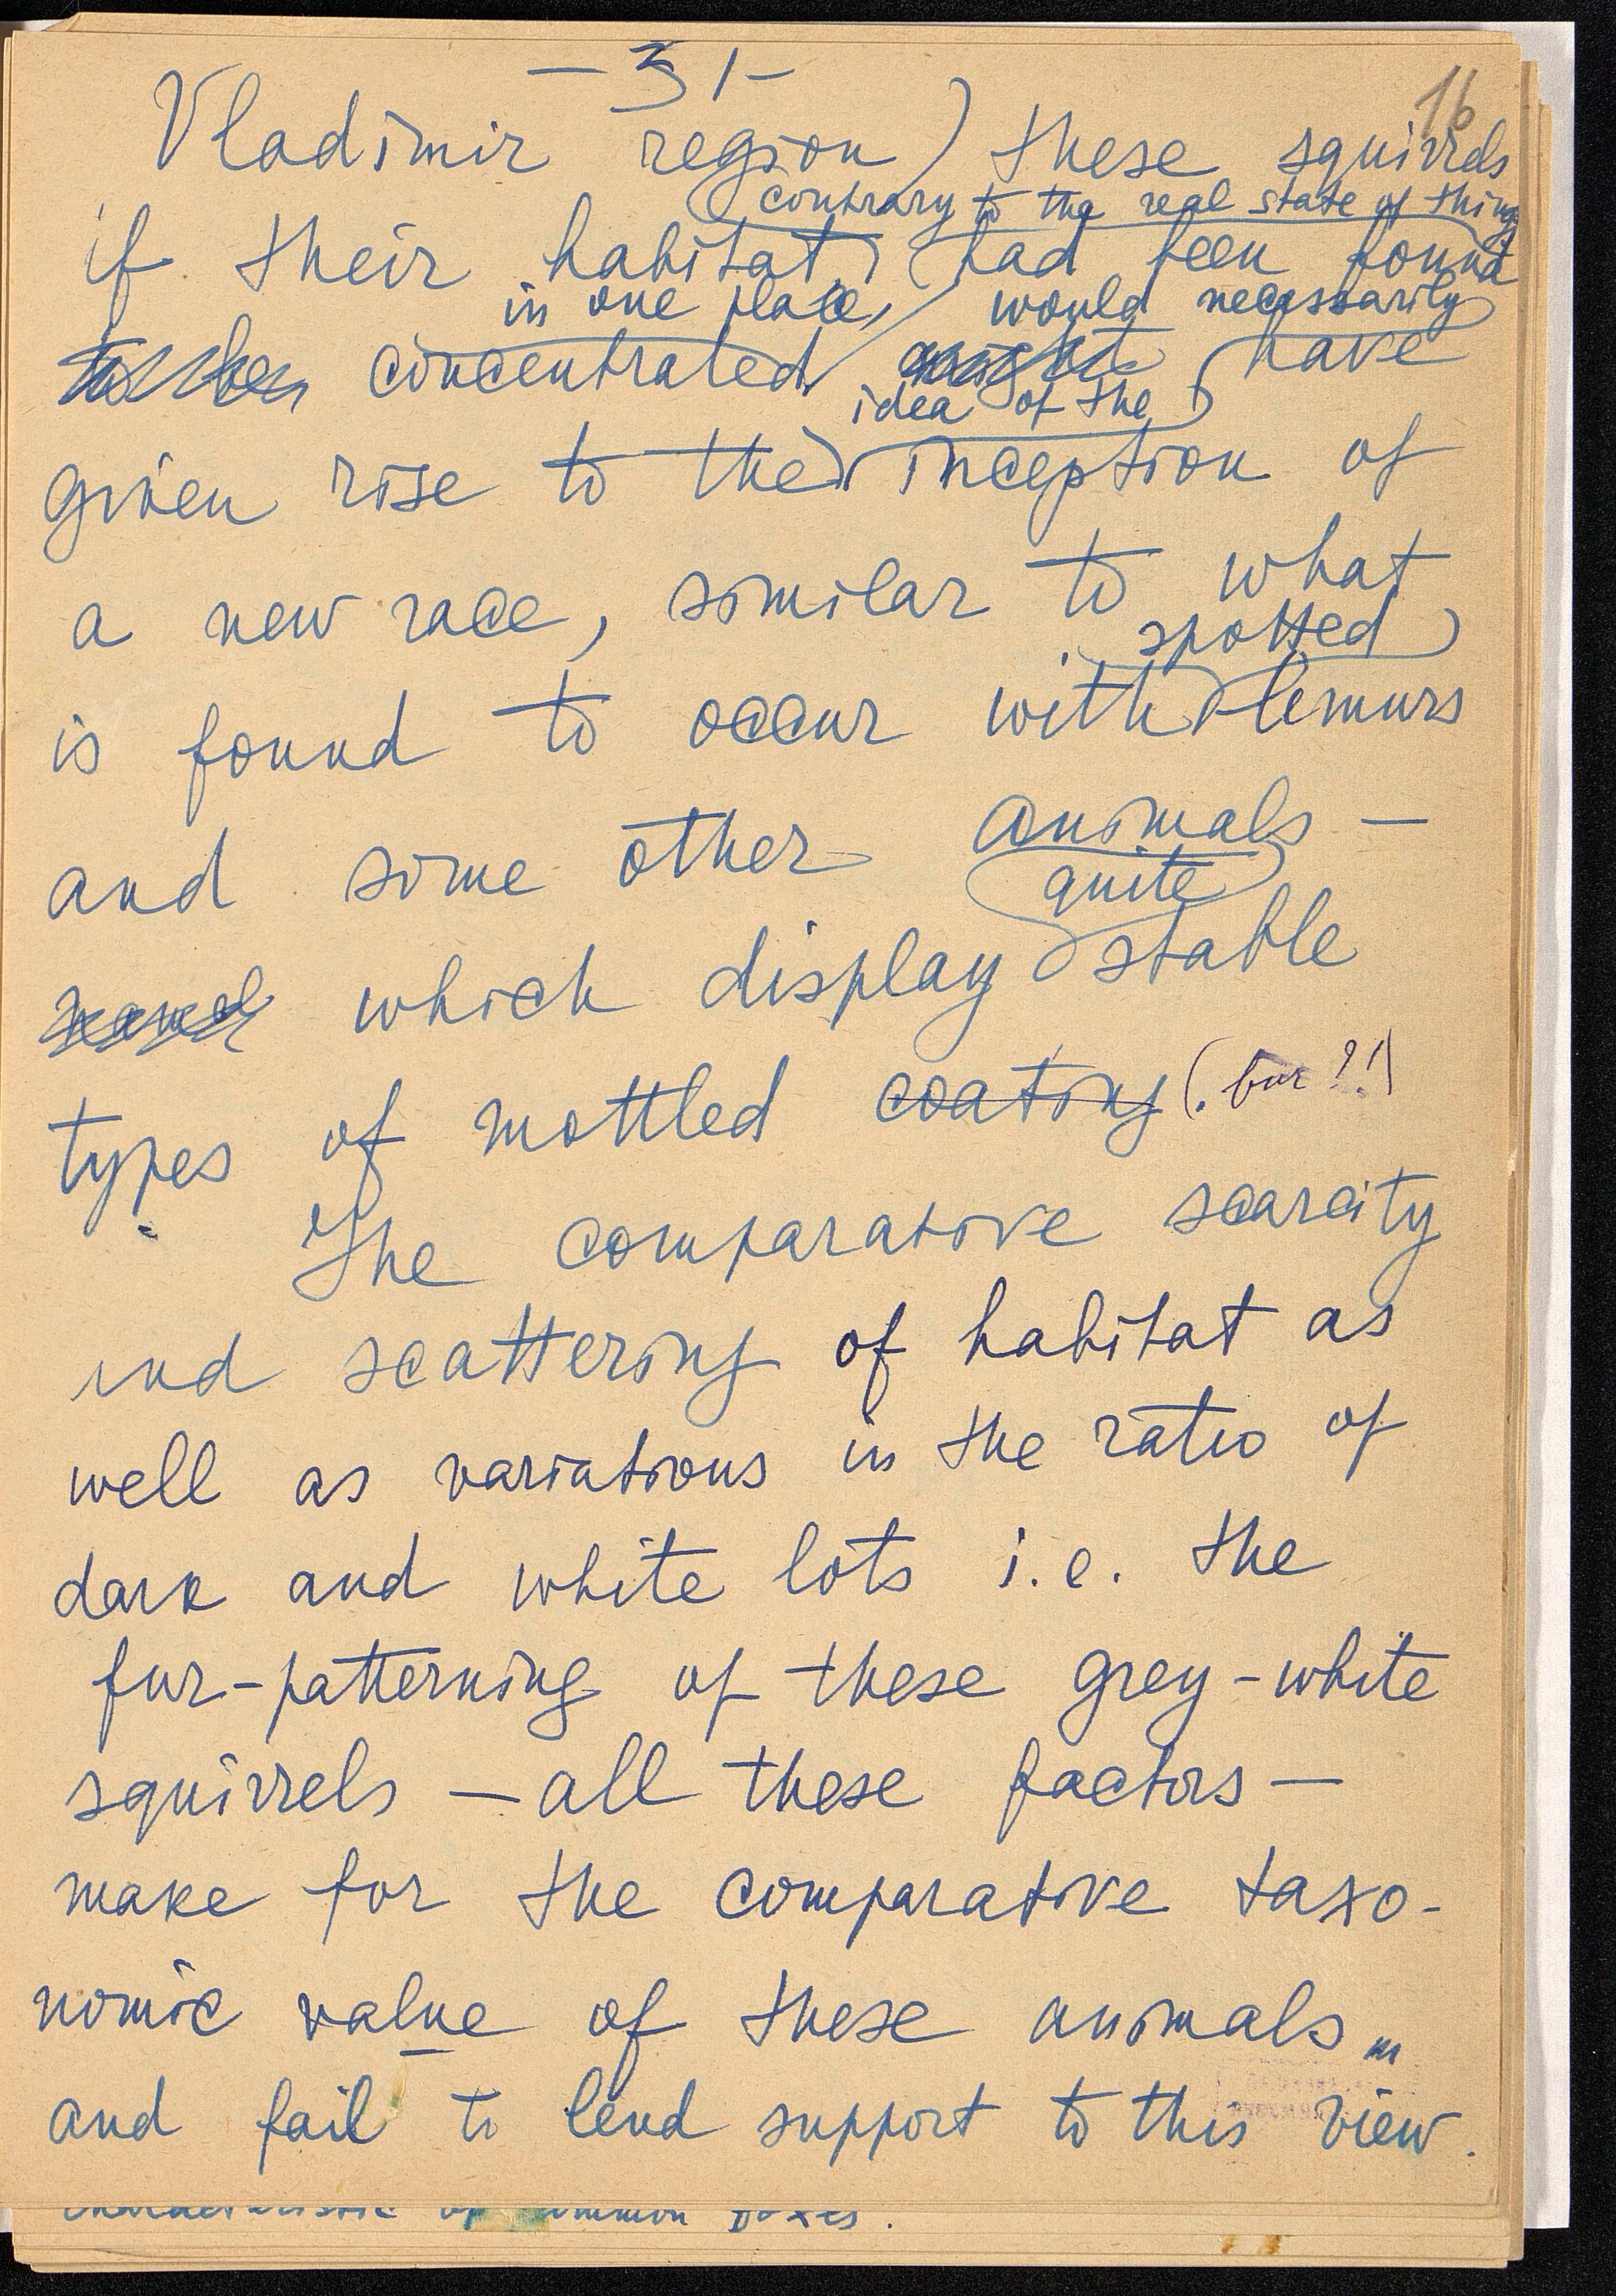 — 31 —
16
Vladimir region) these squirrels
contrary to the real state of things
if their habitat, had been found
in one place, would necessarily
to be concentrated might have
idea of the
given rise to the inception of
a new race, similar to what
spotted
is found to occur with lemurs
and some other animals —
quite
which display stable
types of mottled coating (fur?!)
The comparative scarcity
and scattering of habitat as
well as variations in the ratio of
dark and white lots i.e. the
fur-patterning of these grey-white
squirrels — all these factors —
make for the comparative taxo-
nomic value of these animals
and fail to lend support to this view.
characteristic of common foxes.